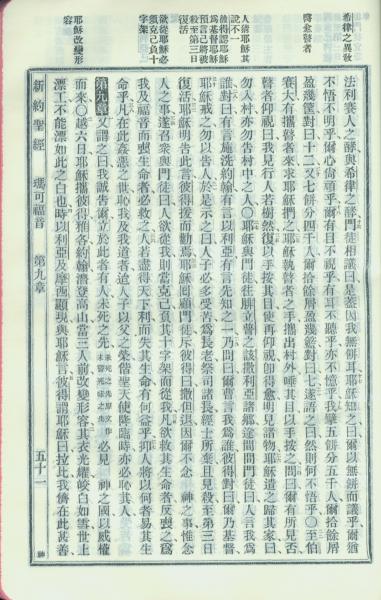 希律之異教
愈瞽者
人猜耶穌其
說不一
彼得認耶穌
為基督耶穌
預言己將被
殺至第三日
復活
欲從耶穌必
須克己負十
字架
耶穌改變形
容
法利賽人之酵與希律之酵門徒相議曰是蓋因我無餅耳耶穌知之曰爾以無餅而議乎爾猶
不悟不明乎爾心尙頑乎爾有目不視乎有耳不聽乎亦不憶乎我擘五餅分五千人爾拾餘屑
盈幾筐對曰十二又七餅分四千人爾拾餘屑盈幾籃對曰七遂語之曰然則何不悟乎〇至伯
賽大有攜瞽者來求耶穌捫之耶穌執瞽者之手攜出村外唾其目以手按之問曰爾有所見否
瞽者仰視曰我見行人若樹然復以手按其目使再仰視卽得愈明見諸物耶穌遣之歸其家曰
勿入村亦勿告村中之人〇耶穌與門徒往腓立比之該撒利亞諸鄉途間問門徒曰人言我為
誰對曰有言施洗約翰有言以利亞有言先知之一乃問曰爾曹言我為誰彼得對曰爾乃基督
耶穌戒之勿以告人於是示之曰人子必多受苦為長老祭司諸長經士所棄且見殺至第三日
復活耶穌明言此言彼得援而勸焉耶穌回顧門徒斥彼得曰撒但退因爾不念 神之事惟念
人之事遂召衆與門徒曰人欲從我則當克己負其十字架而從我凡欲救其生命者反喪之為
我及福音而喪生命者必救之人若盡得天下利而失其生命有何益乎抑人將以何者易其生
命乎凡在此姦惡之世恥我及我道者迨人子以父之榮偕聖天使降臨時亦必恥其人
第九章又謂之曰我誠告爾立於此者有人未死之先必見 神之國以威權
而來〇越六日耶穌攜彼得雅各約翰潛登高山當三人前改變形容其衣光耀皎白如雪世上
漂工不能漂如此之白也時以利亞及摩西顯現與耶穌言彼得謂耶穌曰拉比我儕在此甚善
新約聖經 瑪可福音 第九章 五十一